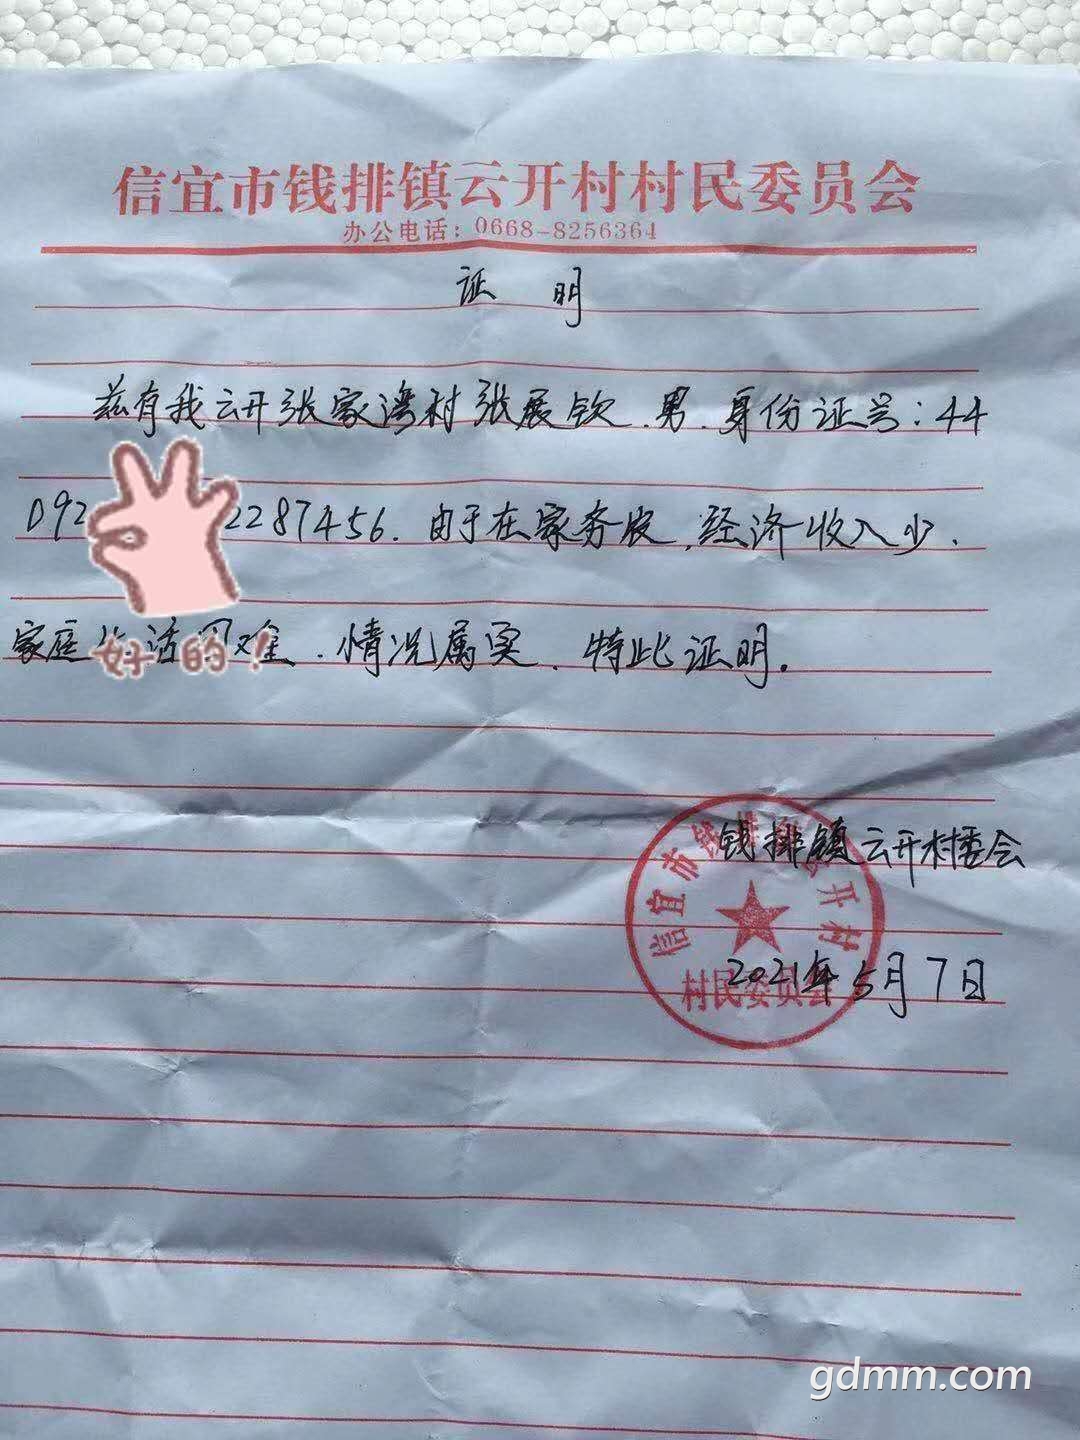 信宜市钱排镇云开村村民委员会
办公电话：0668-8256364
证 明
兹有我云开张家湾村张展钦.男.身份证号：44
092 2287456.由于在家务农,经济收入少.
家庭生活困难.情况属实.特此证明.
好的！
钱排镇云开村委会
2021年5月7日
信宜市钱排镇云开村
村民委员会
gdmm.com